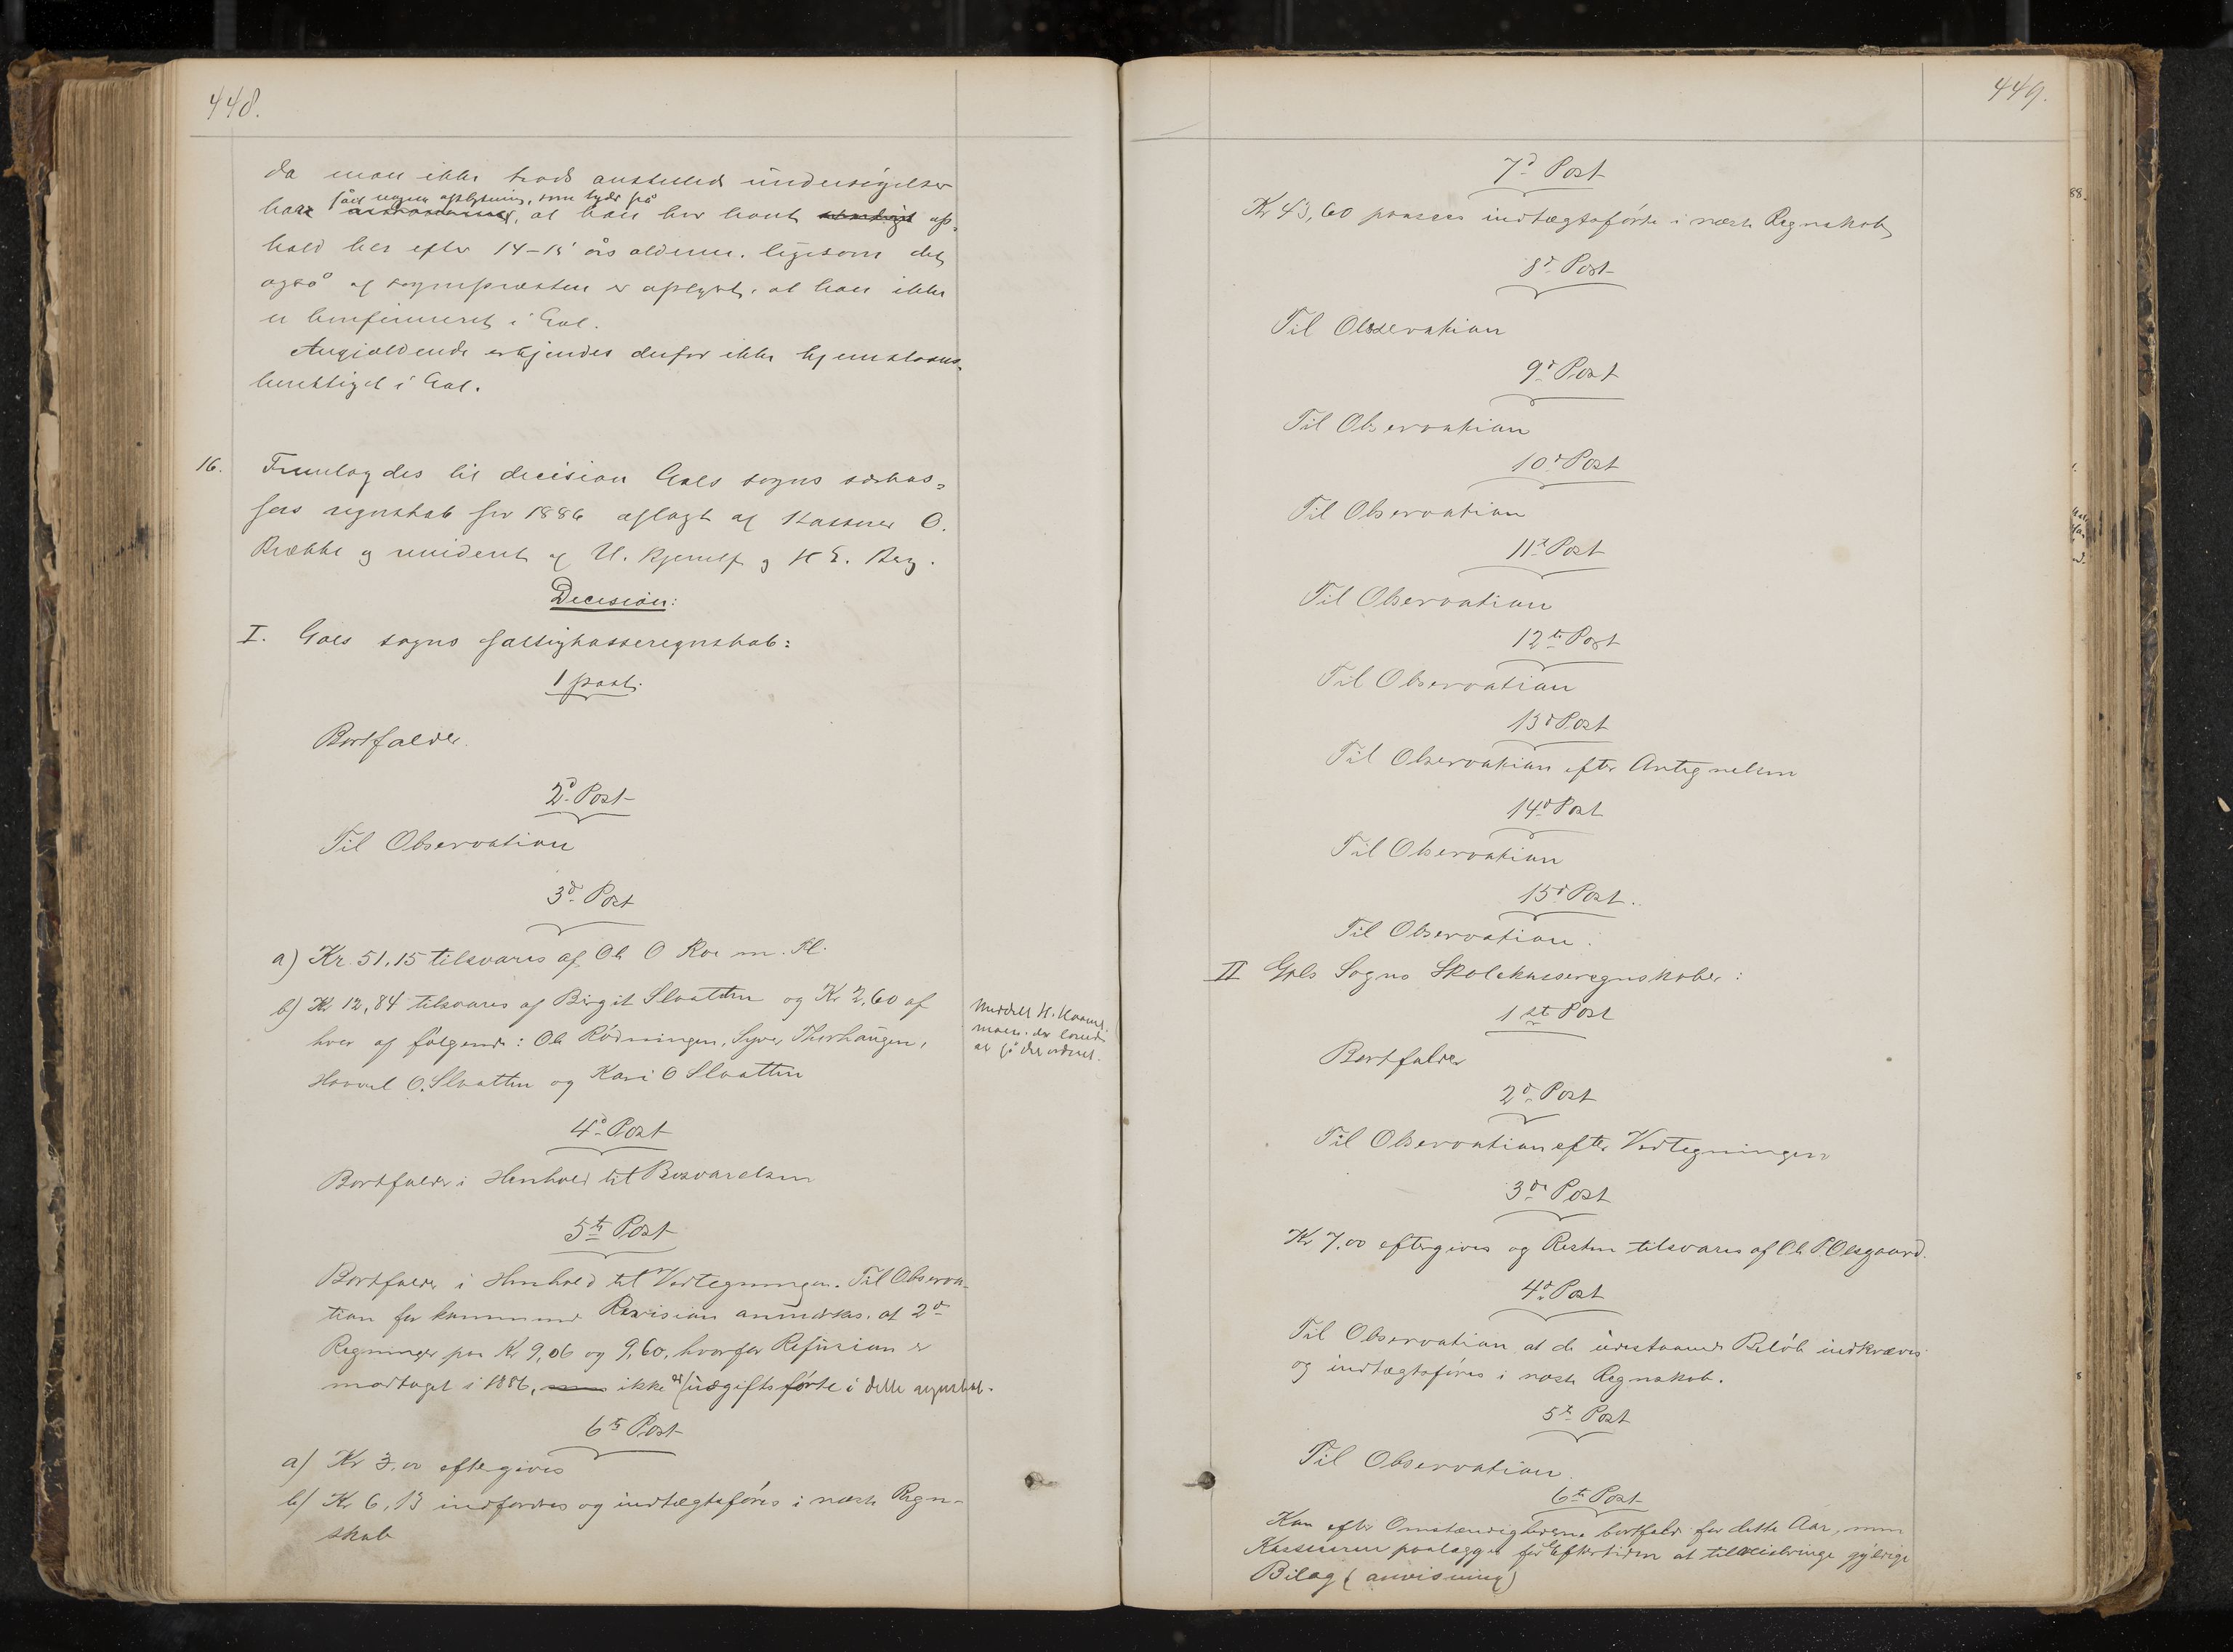 448.
da man ikke trods anstillede undersøgelser
fået nogen oplysning, som tyder på
have at han har havt op-
hold her efter 14-15 års alderen. ligesom det
også af sognepresten er oplyst, at han ikke
er konfirmeret i Gol.
Angjældende erkjendes derfor ikke hjemstavns-
berettiget i Gol.
16. Fremlagdes til decision Gols sogns
regnskab for 1886 aflagt af kasserer O.
Brække og revideret af U. og H E. Berg.
Decision:
I. Gols sogns fattigkasseregnskab:
1 post.
Bortfalder.
2d Post
Til Observation
3d Post
a) Kr. 51.15 tilsvares af Ole O Roe m. Fl.
b) Kr 12,84 tilsvares af Birgit Slaatten og Kr 2,60 af
hver af følgende: Ole Rödningen, Syver Thorhaugen,
Haavel O. Slaatten og Kari O Slaatten
Meddelt H.
at få det ordnet.
4d Post
Bortfalder i Henhold til Besvarelsen
5te Post
Bortfalder i Henhold til Vedtegningen. Til Observa-
tion for kommende Revision anmærkes, at 2de
Regninger paa Kr 9,06 og 9,60, hvorfor Refusion er
modtaget i 1886, ikke er udgiftsførte i dette regnskab.
6te Post
a) Kr 3.00 eftergives
b) Kr 6,13 indfordres og indtægtsføres i næste Regn-
skab
449.
7d Post
Kr 43,60 paasees indtægtsførte i næste Regnskab
8d Post
Til Observation
9d Post
Til Observation
10d Post
Til Observation
11te Post
Til Observation
12te Post
Til Observation
13d Post
Til Observation efter Antegnelsen
14d Post
Til Observation
15d Post.
Til Observation.
II Gols Sogns Skolekasseregnskaber:
1ste Post
Bortfalder
2d Post
Til Observation efter Vedtegningen
3de Post
Kr 7,00 eftergives og Resten tilsvares af Ole P. Olsgaard.
4d Post
Til Observation at de udestaaende Beløb indkræves
og indtægtsføres i næste Regnskab.
5te Post
Til Observation.
6te Post
Kan efter Omstændighederne bortfalde for dette Aar, men
Kassereren paalægges for Eftertiden at tilveiebringe gyldige
Bilag (anvisning)